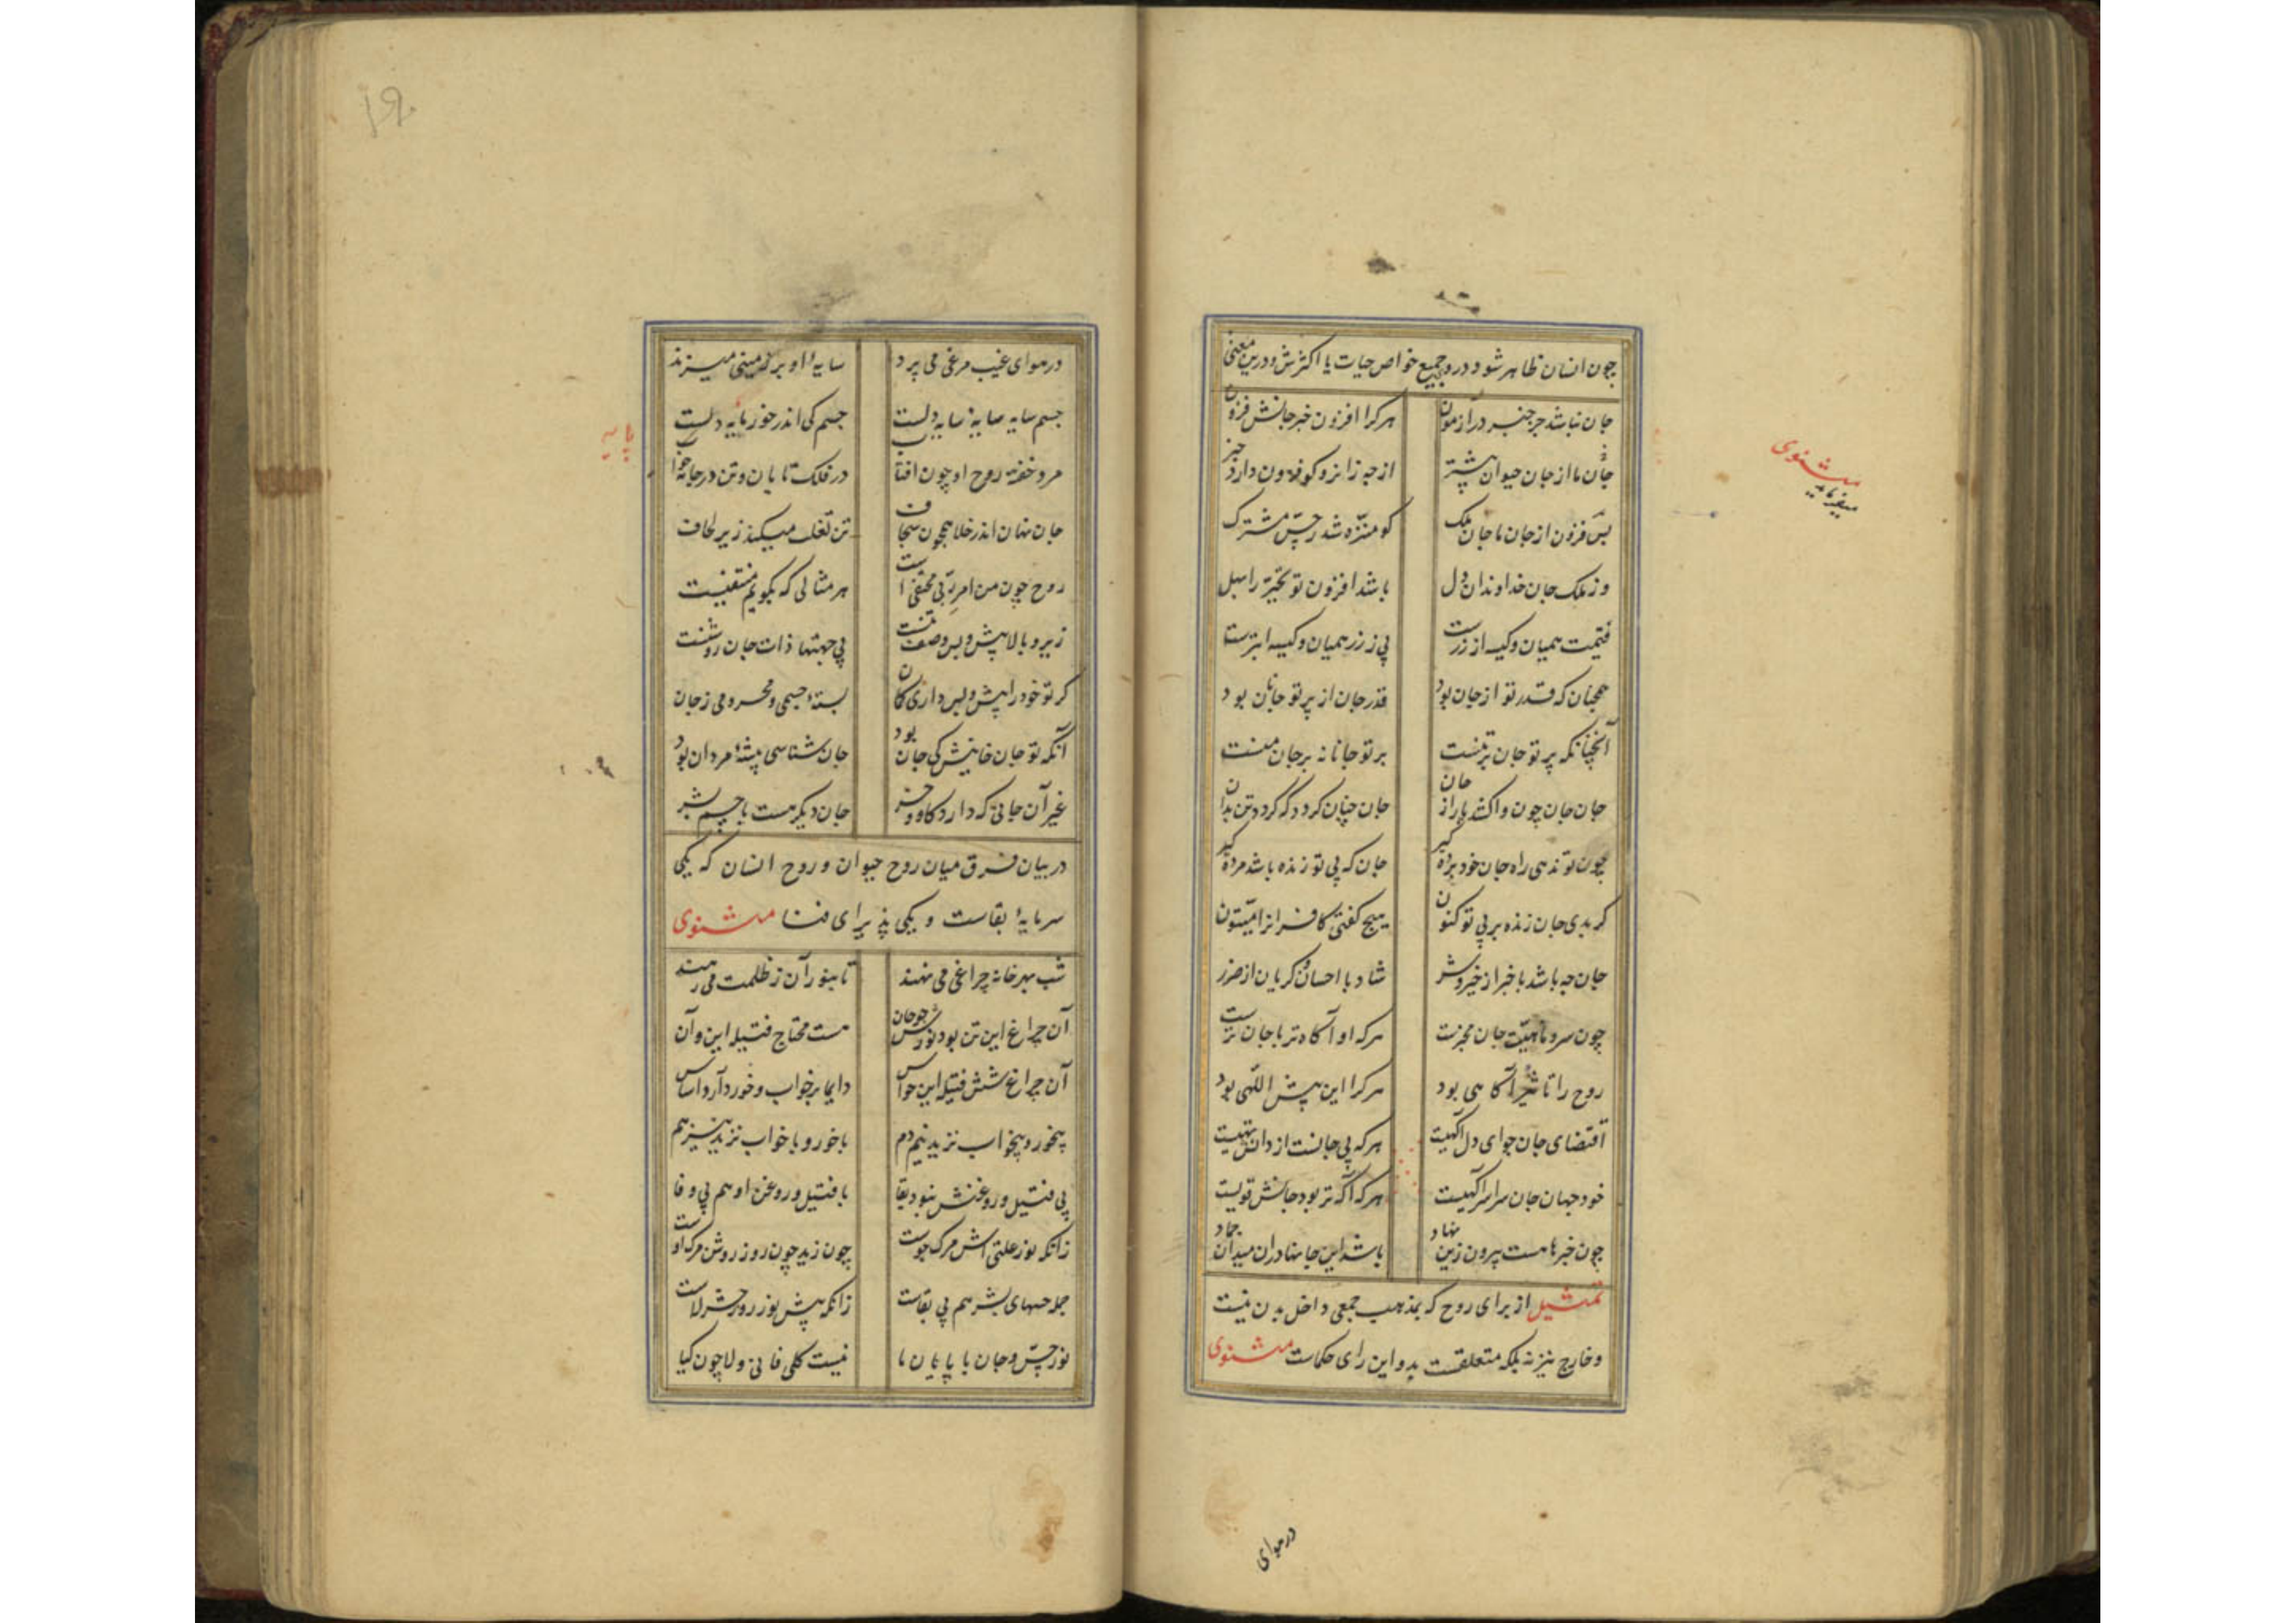 چون انسان ظاهر شود در وجمیع خواص حیات یا اکثرش و درین معنی
مثنوی
میفرماید
جان نباشد جز خبر در آزمون هر کرا افزون خبر جانش فزون
جان ما از جان حیوان بیشتر از چه زانرو کو فزون دارد خبر
بس فزون از جان ما جان ملک کو منزه شد ز حس مشترک
وز ملک جان خداوندان دل باشد افزون تو تحیر را بهل
قیمت همیان و کیسه از زرست بی ز زر همیان و کیسه ابترست
همچنان که قدر تو از جان بود قدر جان از پرتو جانان بود
آنچنانکه پرتو جان بر تنست پرتو جانانه بر جان منست
جان جان چون واکشد پا را ز جان جان چنان گردد که گردد تن بدان
چون تو ندهی راه جان خود برده گیر جان که بی تو زنده باشد مرده گیر
گر بدی جان زنده بی پرتو کنون هیچ گفتی کافرانرا میتون
جان چه باشد با خبر از خیر و شر شاد با احسان و گریان از ضرر
چون سر و ماهیت جان مخبرست هر که او آگاه تر با جان ترست
روح را تاثیر آگاهی بود هر کرا این بیش اللهی بود
اقتضای جان چو ای دل آگهیست هر که بی جانست از دانش تهیست
خود جهان جان سراسر آگهیست هر که آگه تر بود جانش قویست
چون خبرها هست بیرون زین نهاد باشد این جانها در ان میدان جماد
تمثیل از برای روح که بمذهب جمعی داخل بدن نیست
وخارج نیز نه بلکه متعلقست بدو این رای حکماست مثنوی
در هوای
در هوای غیب مرغی می پرد سایهٔ او بر زمینی میزند
جسم سایه سایهٔ سایه دلست جسم کی اندر خور پایه دلست
پایه
مرد خفته روح او چون افتاب در فلک تابان و تن در جامه خواب
جان نهان اندر خلا همچون سجاف تن تقلب میکند زیر لحاف
روح چون من امر ربی مختفی است هر مثالی که بگویم منتفیست
زیر و بالا پیش و پس وصف تنست بی جهتها ذات جان روشنست
گر تو خود را پیش و پس داری گمان بستهٔ جسمی و محرومی ز جان
آنکه تو جان خوانیش کی جان بود جان شناسی پیشهٔ مردان بود
غیر آن جانی که دارد گاو و خر جان دیگر هست با جسم بشر
در بیان فرق میان روح حیوان و روح انسان که یکی
سرمایهٔ بقاست و یکی پذیرای فنا مثنوی
شب بهر خانه چراغی می نهند تا بنور آن ز ظلمت می رهند
آن چراغ این تن بود نورش چو جان هست محتاج فتیله این و آن
آن چراغ شش فتیله این حواس دایما بر خواب و خور دارد اساس
بیخور و بیخواب نزید نیم دم با خور و با خواب نزید نیز هم
بی فتیل و روغنش نبود بقا با فتیل و روغن او هم بی وفا
زانکه نور علتی اش مرگ جوست چون زید چون روز روشن مرگ اوست
جمله حسهای بشر هم بی بقاست زانکه پیش نور روز حشر لاست
نور حس و جان با پایان ما نیست کلی فانی و لا چون گیا